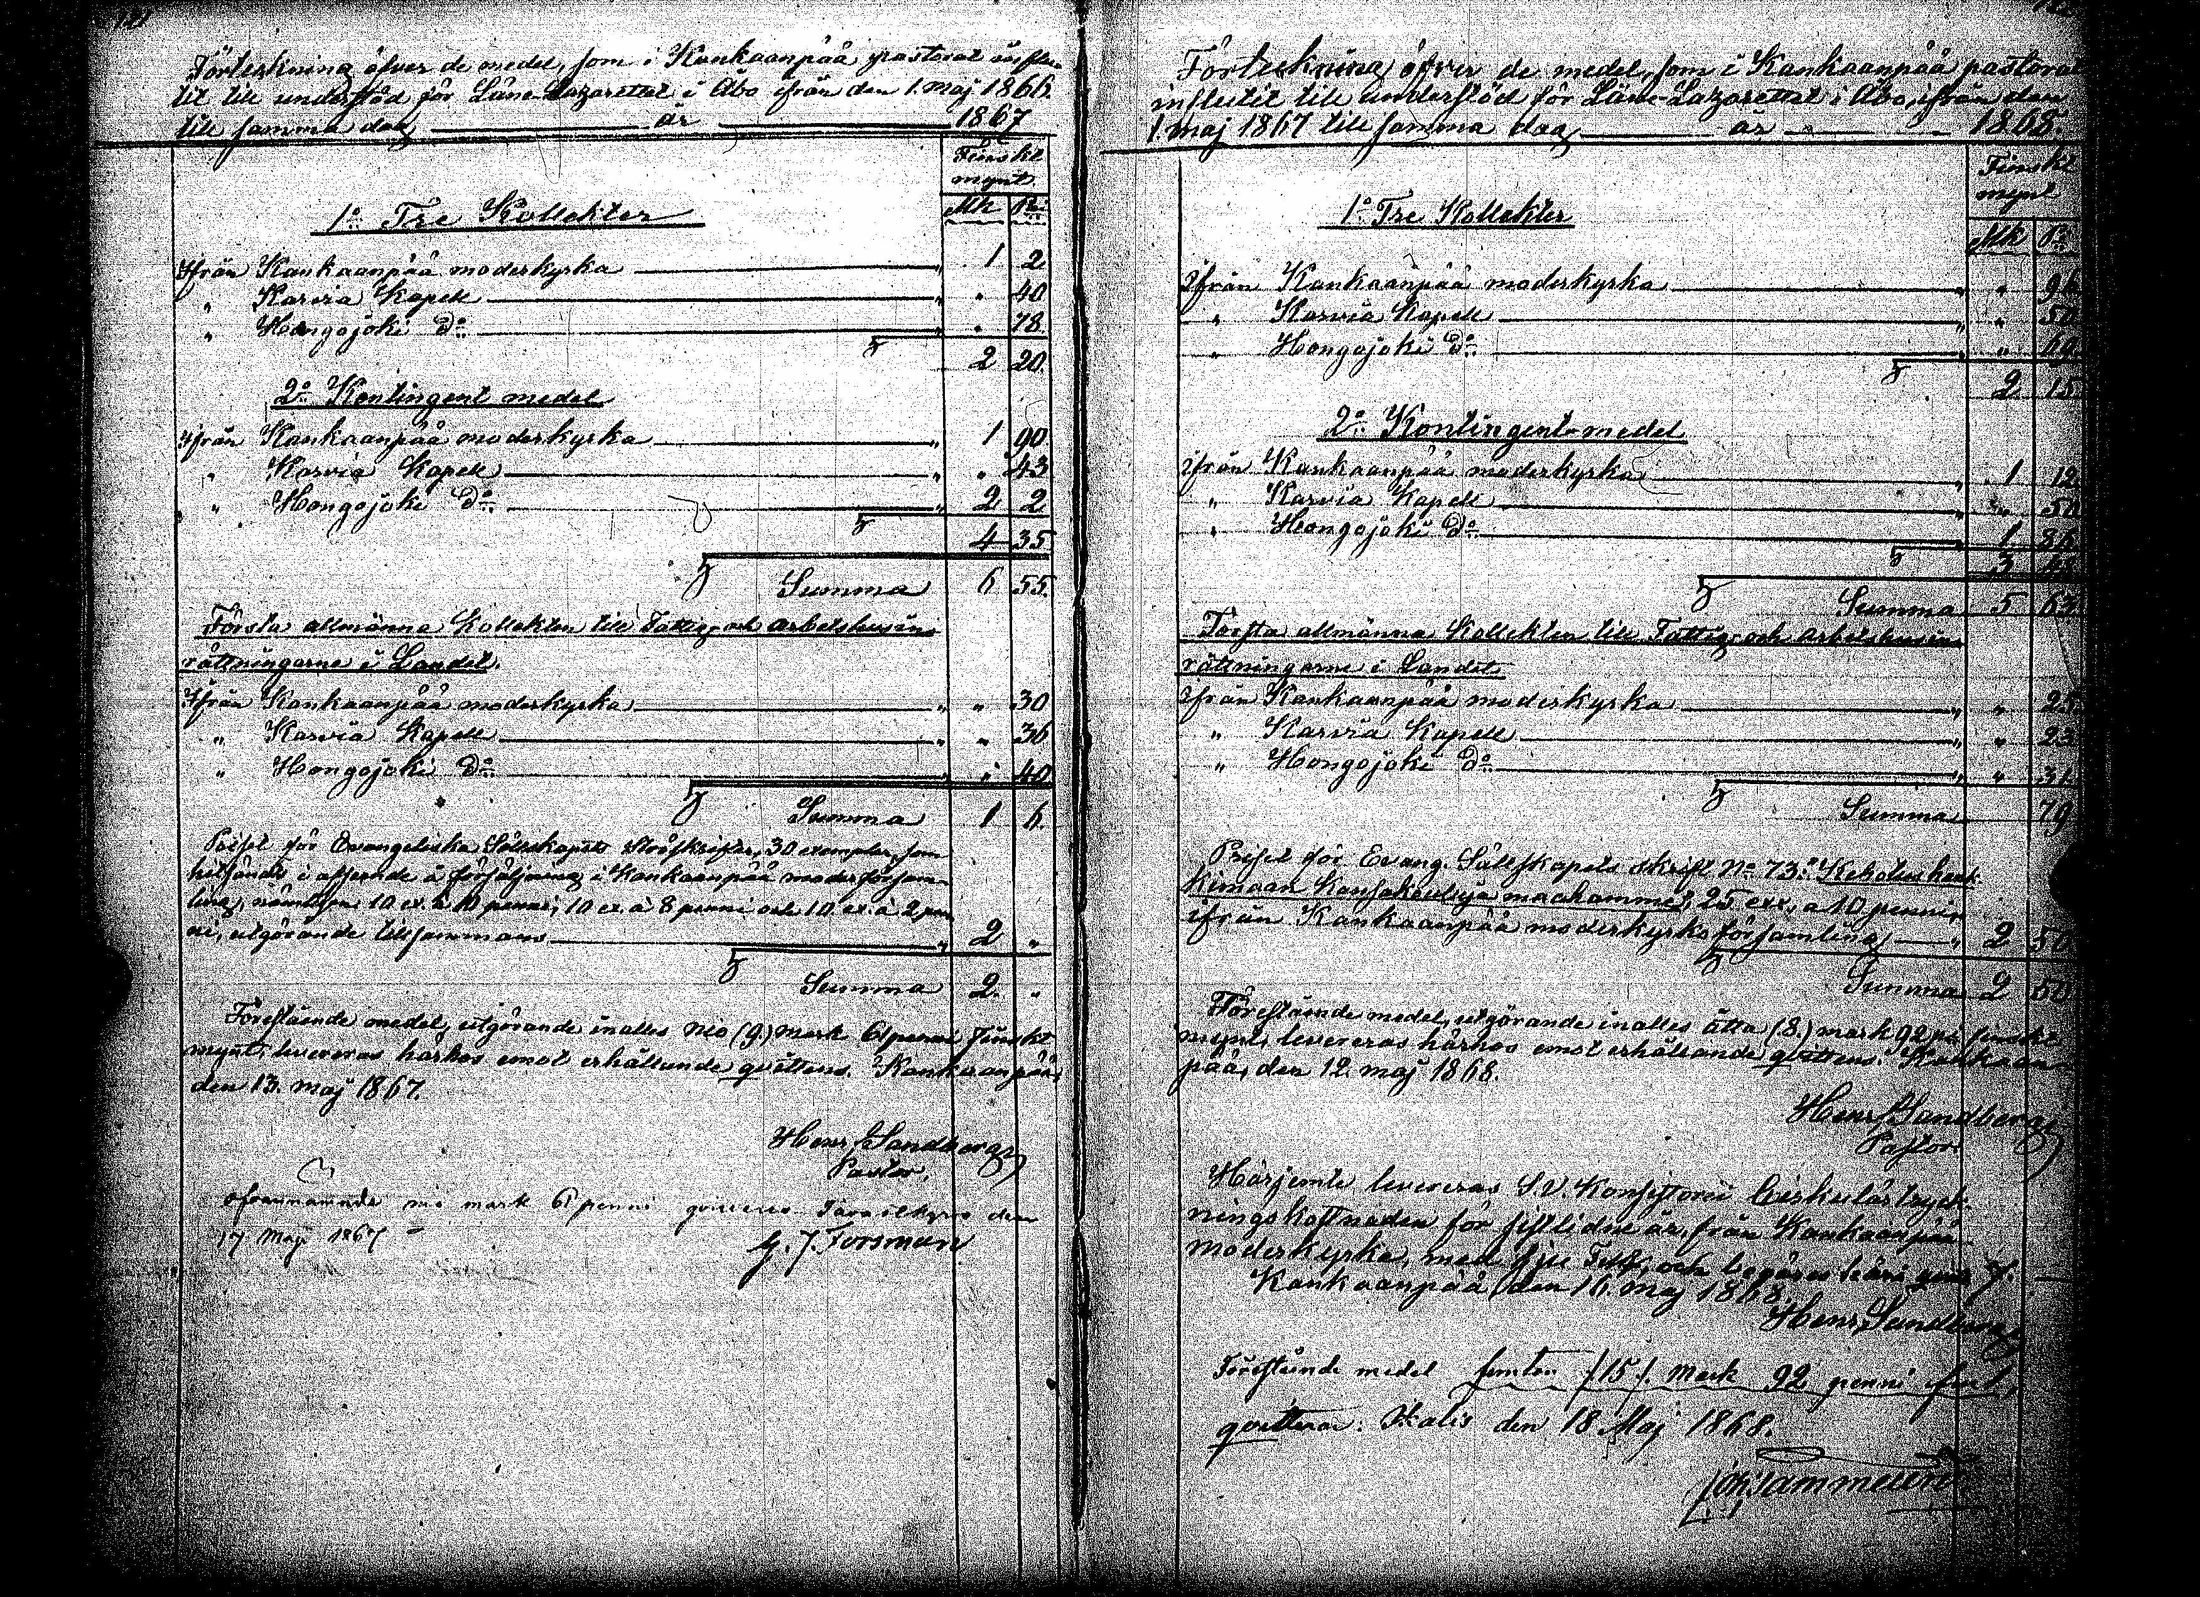 121
Förteckning öfver de medel, som i Kankaanpää pastorat influ-
tit till understöd för Läne-Lazarettet i Åbo ifrån den 1. maj 1866.
till samma dag år 1867
Finskt
mynt
1o Tre Kollekter
Mk Pi
Ifrån Kankaanpää moderkyrka " 1 2
" Karvia Kapell " " 40
" Hongojoki do " " 78
2 20
2o Kontingent medel
Ifrån Kankaanpää moderkyrka " 1 90
" Karvia Kapell " " 43
" Hongojoki do " 2 2
4 35
Summa 6 55
Första allmänna Kollekten till Fattig och arbetshusin-
rättningarne i Landet.
Ifrån Kankaanpää moderkyrka " " 30
" Karvia Kapell " " 36
" Hongojoki do " " 40
Summa 1 6.
Priset för Evangeliska Sällskapets ströskrifter, 30 exemplar, som
hitsände i afseende å försäljning i Kankaanpää moderförsam-
ling, nämligen 10 ex. à 10 penni, 10 ex. à 8 penni och 10 ex. à 2 pen-
ni, utgörande tillsammans " 2 "
Summa 2. "
Förestående medel, utgörande inalles nio (9.) mark 61 penni Finskt
mynt, levereras härhos emot erhållande qvittens. Kankaanpää,
den 13. maj 1867.
Henr. Sandberg
Pastor.
Ofvannämnde nio mark 61 penni qvitteras Tavastkyro den
17 Maji 1867
G. J. Forsman
Förteckning öfver de medel, som i Kankaanpää pastorat
influtit till understöd för Läne-Lazarettet i Åbo, ifrån den
1. maj 1867 till samma dag år 1868.
Finskt
mynt
1o Tre Kollekter
Mk Pi
Ifrån Kankaanpää moderkyrka " " 96
" Karvia Kapell " " 50
" Hongojoki do " " 69
2 15
2o Kontingent-medel
Ifrån Kankaanpää moderkyrka " 1 12
" Karvia Kapell " " 50
" Hongojoki do 1 86
3 48
Summa 5 63
Första allmänna Kollekten till Fattig- och arbetshusin-
rättningarne i Landet
Ifrån Kankaanpää moderkyrka " " 25
" Karvia Kapell " " 23
" Hongojoki do " " 31
Summa 79
Priset för Evang. Sällskapets skrift No 73:
Kansakouluja maahamme, 25 exx. a 10 pennin
ifrån Kankaanpää moderkyrkoförsamling " 2 50
Summa 2 50
Förestående medel, utgörande inalles åtta (8.) mark 92 pi finskt
mynt, levereras härhos emot erhållande qvittens. Kankaan-
pää, den 12. maj 1868.
Henr. Sandberg
Pastor.
Härjemte levereras S. V. Konsistorii Cirkulärtryck-
ningskostnaden för sistlidne år, från Kankaanpää
moderkyrka, med sju och begäres häri 7.
Kankaanpää, den 16. maj 1868.
Henr. Sandberg
Förestående medel femton /15/. Mark 92 penni
qvitterar. Ikalis den 18 Maj 1868.